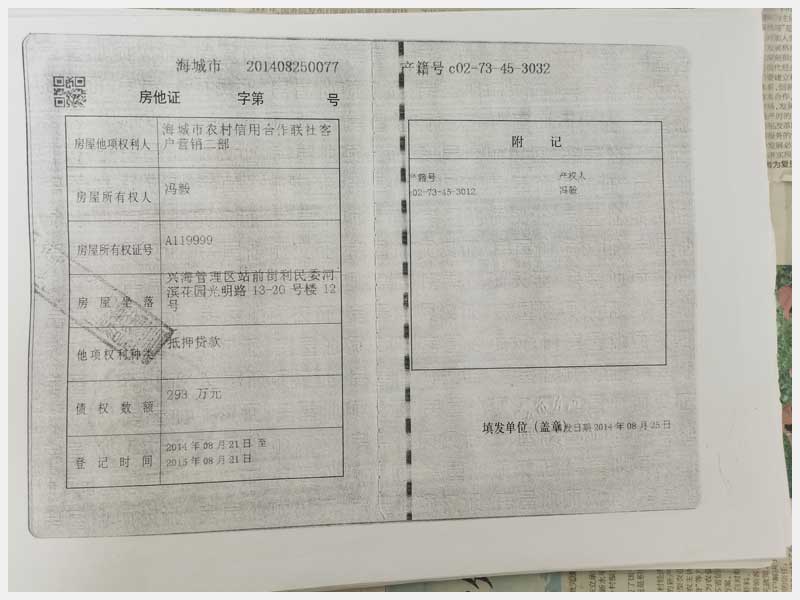 海城市 201408250077
房他证 字第 号
房屋他项权利人 海城市农村信用合作联社客
户营销二部
房屋所有权人 冯毅
房屋所有权证号 A119999
房屋坐落 兴海管理区站前街利民委河
滨花园光明路 13-20 号楼 12
号
他项权利种类 抵押贷款
债权数额 293 万元
登记时间 2014 年 08 月 21 日 至
2015 年 08 月 21 日
产籍号 c02-73-45-3032
附 记
产籍号 产权人
c02-73-45-3012 冯毅
填发单位（盖章） 发日期 2014 年 08 月 25 日